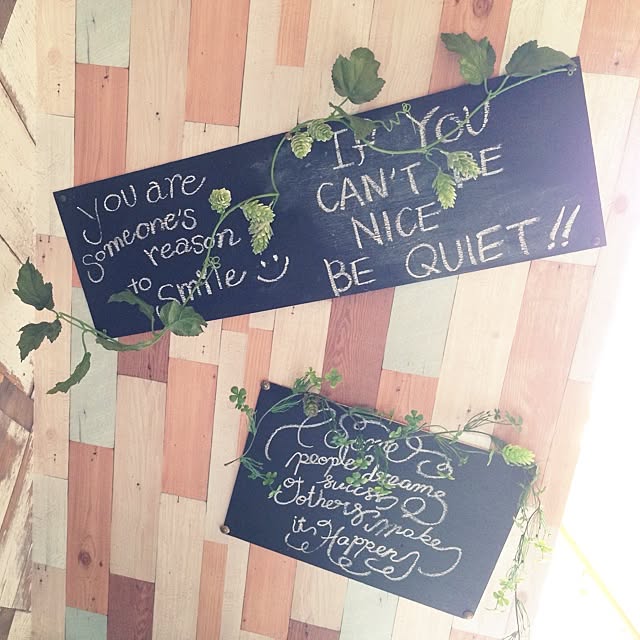 you are
someone's
reason
to
smile :)
If YOU
CAN'T BE
NICE
BE QUIET!!
Some
people dreame
of success
others make
it Happen